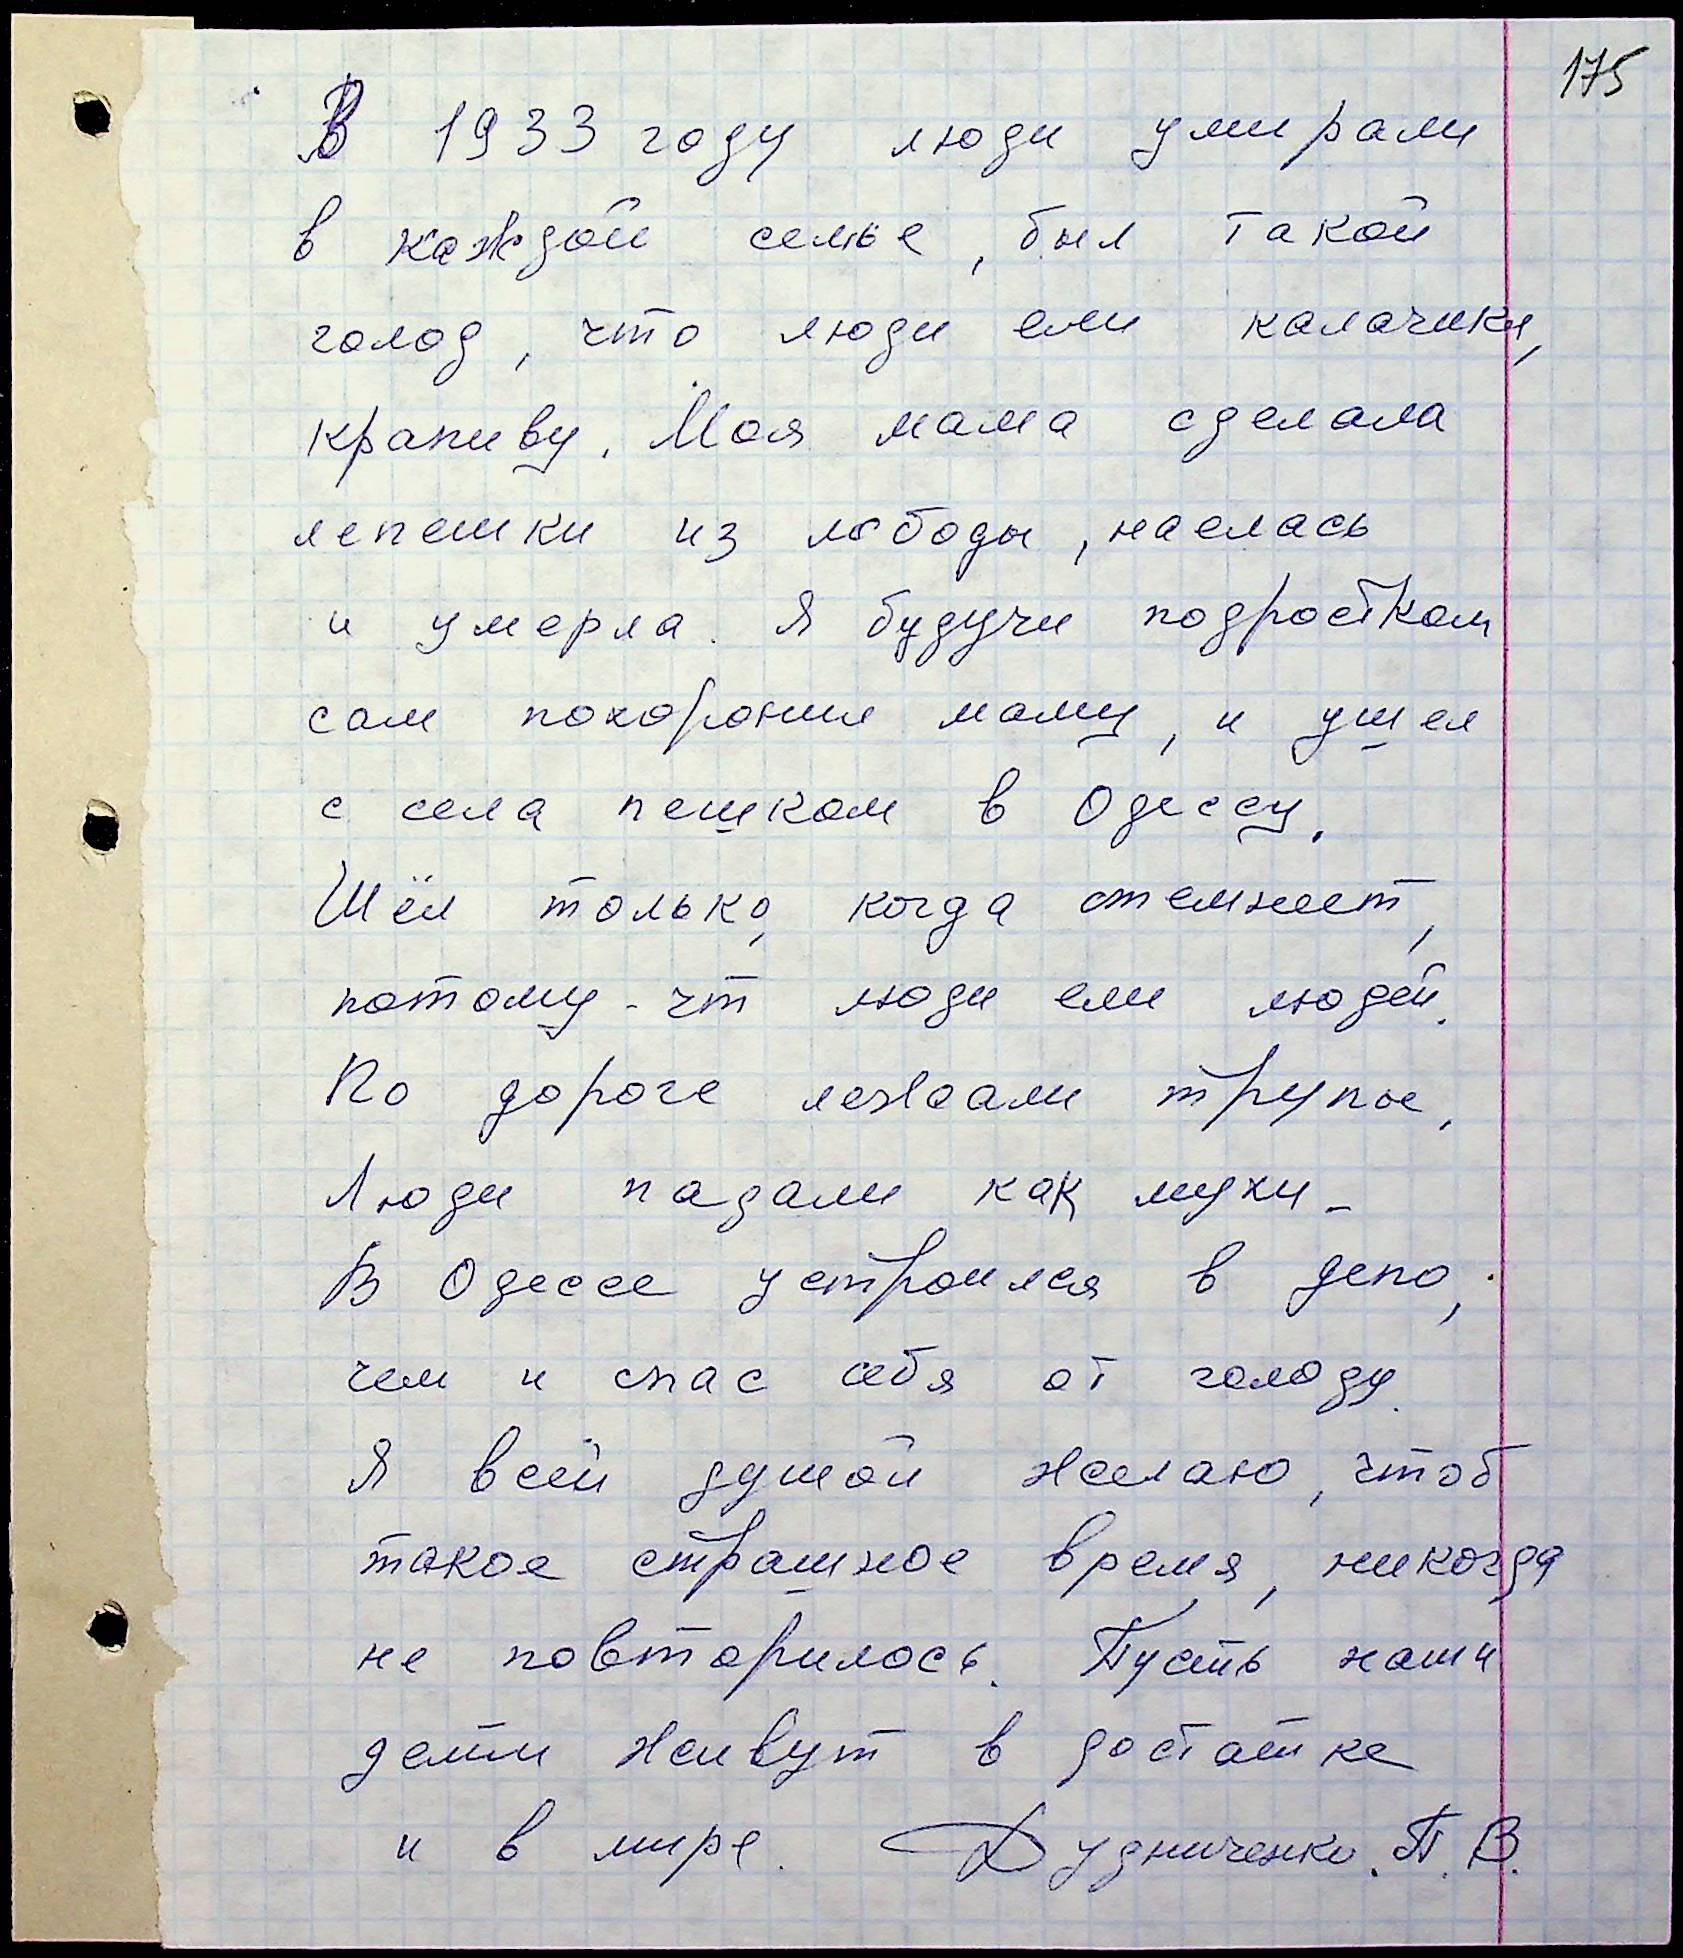 175
В 1933 году люди умирали
в каждой семье, был такой
голод, что люди ели калачики,
крапиву. Моя мама сделала
лепешки из лободы, наелась
и умерла. Я будучи подростком
сам похоронил маму, и ушел
с села пешком в Одессу.
Шёл только, когда стемнеет,
потому-чт люди ели людей.
По дороге лежали трупы,
Люди падали как мухи.
В Одессе устроился в депо,
чем и спас себя от голоду.
Я всей душой желаю, чтоб
такое страшное время, никогда
не повторилось. Пусть наши
дети живут в достатке
и в мире. Дудниченко. П. В.